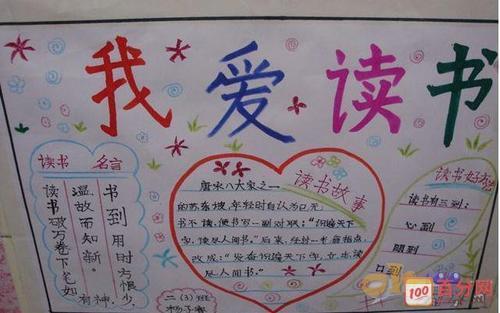 我爱读书
读书 名言
书到用时方恨少,
温故而知新。
读书破万卷下笔如
有神,
读书故事
唐宋八大家之一
的苏东坡,年轻时自认为
书不读,便书写一副对联:"识遍天下
字,读尽人间书。"后来,经过一老者指点,
改成:"发奋识遍天下字,立志读
尽人间书。"
读书好
读书有三到:
心到
眼到
口到
二(3)班
杨子
100 百分网